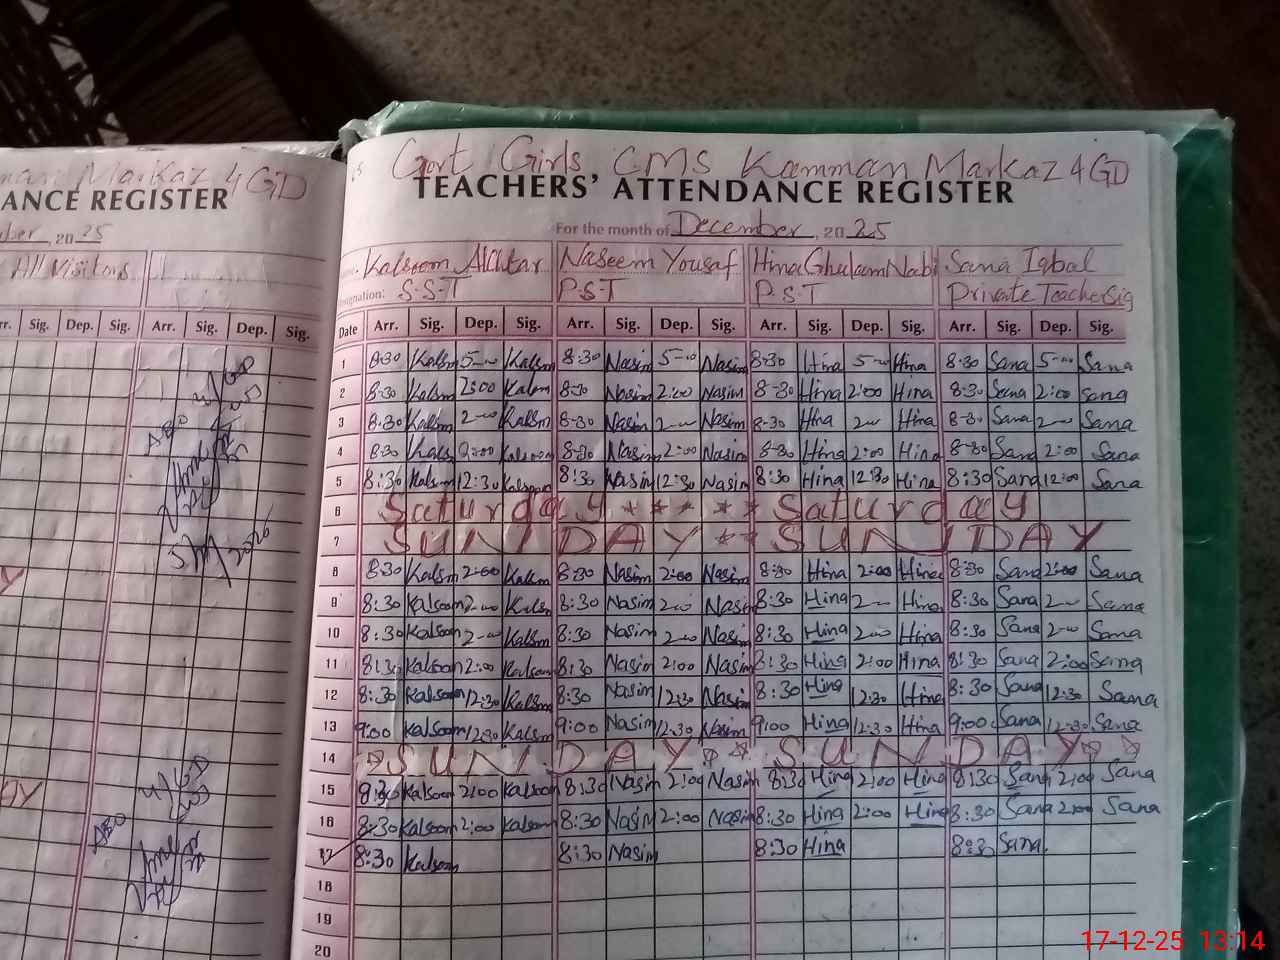 Markaz 4 GD
ANCE REGISTER
20 25
All Visitors
Sig. Dep. Sig. Arr. Sig. Dep. Sig.
Govt Girls CMS Kamman Markaz 4 GD
TEACHERS' ATTENDANCE REGISTER
For the month of December, 20 25
Kalsoom Akhtar Naseem Yousaf Hina Ghulam Nabi Sana Iqbal
Designation: S.S.T P.S.T P.S.T Private Teacher Sig
Date Arr. Sig. Dep. Sig. Arr. Sig. Dep. Sig. Arr. Sig. Dep. Sig. Arr. Sig. Dep. Sig.
1 8:30 Kalsm 5-00 Kalsm 8:30 Nasim 5-00 Nasim 8-30 Hina 5-00 Hina 8:30 Sana 5-00 Sana
2 8-30 Kalsm 2:00 Kalsm 8-30 Nasim 2:00 Nasim 8-30 Hina 2:00 Hina 8:30 Sana 2:00 Sana
3 8.30 Kalsm 2-00 Kalsm 8-30 Nasim 2-00 Nasim 8-30 Hina 2-00 Hina 8-30 Sana 2-00 Sana
4 8:30 Kals 2:00 Kalsoom 8-30 Nasim 2:00 Nasim 8-30 Hina 2:00 Hina 8-30 Sana 2:00 Sana
5 8:30 Kalsm 12:30 Kalsoom 8:30 Nasim 12:30 Nasim 8:30 Hina 12:30 Hina 8:30 Sana 12:00 Sana
6 Saturday * * * * * Saturday
7 SUNDAY * * SUNDAY
8 8:30 Kalsm 2:00 Kalsm 8:30 Nasim 2:00 Nasim 8:30 Hina 2:00 Hina 8:30 Sana 2:00 Sana
9 8:30 Kalsoom 2-00 Kalsm 8:30 Nasim 2:00 Nasim 8:30 Hina 2-00 Hina 8:30 Sana 2-00 Sana
10 8:30 Kalsoom 2-00 Kalsm 8:30 Nasim 2-00 Nasim 8:30 Hina 2-00 Hina 8:30 Sana 2-00 Sana
11 8:30 Kalsoom 2:00 Kalsoom 8:30 Nasim 2:00 Nasim 8:30 Hina 2:00 Hina 8:30 Sana 2:00 Sana
12 8:30 Kalsoom 12:30 Kalsm 8:30 Nasim 12:30 Nasim 8:30 Hina 12:30 Hina 8:30 Sana 12:30 Sana
13 9:00 Kalsoom 12:30 Kalsm 9:00 Nasim 12:30 Nasim 9:00 Hina 12:30 Hina 9:00 Sana 12:30 Sana
14 SUNDAY SUNDAY
15 8:30 Kalsoom 2:00 Kalsoom 8:30 Nasim 2:00 Nasim 8:30 Hina 2:00 Hina 8:30 Sana 2:00 Sana
16 8:30 Kalsoom 2:00 Kalsoom 8:30 Nasim 2:00 Nasim 8:30 Hina 2:00 Hina 8:30 Sana 2:00 Sana
17 8:30 Kalsoom 8:30 Nasim 8:30 Hina 8:30 Sana
18
19
20
17-12-25 13:14